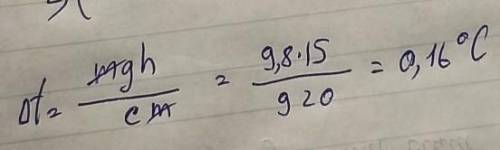 Δt = mgh / cm = 9,8·15 / 920 = 0,16°C